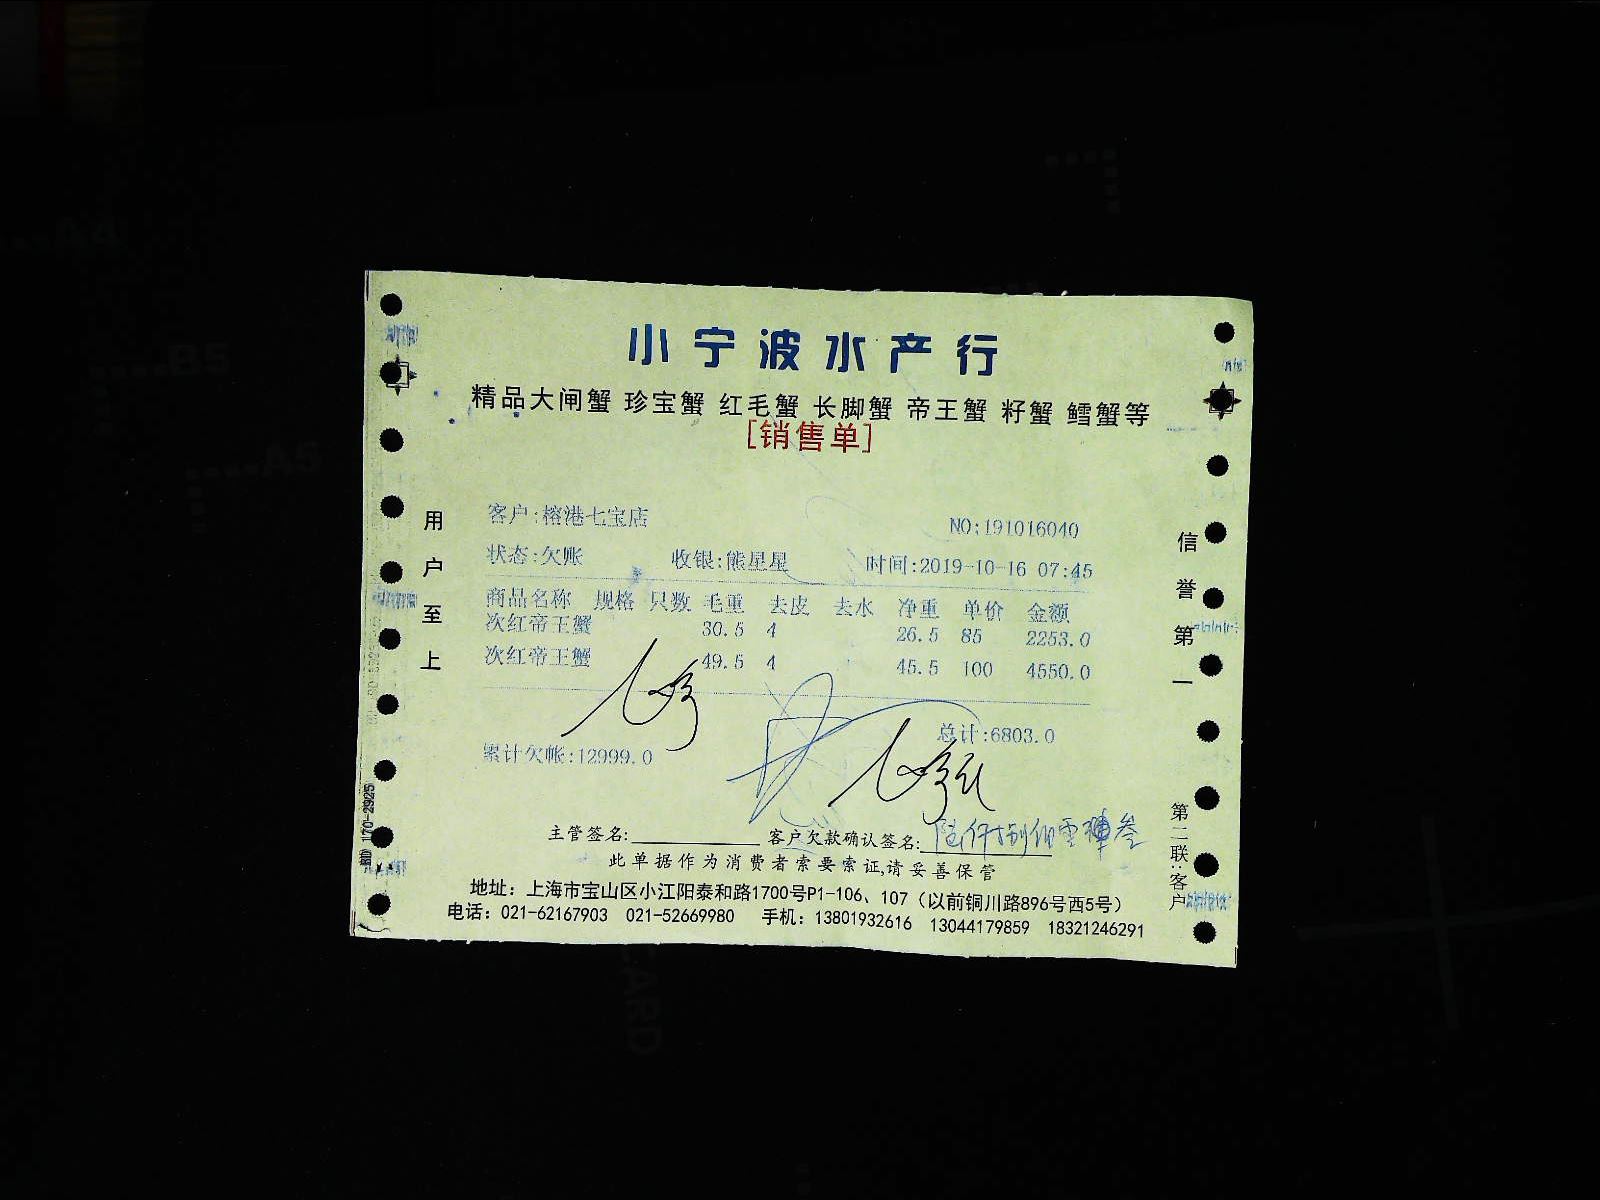 小宁波水产行
精品大闸蟹 珍宝蟹 红毛蟹 长脚蟹 帝王蟹 籽蟹 鳕蟹等
[销售单]
客户:榕港七宝店 NO:191016040
状态:欠账 收银:熊星星 时间:2019-10-16 07:45
商品名称 规格 只数 毛重 去皮 去水 净重 单价 金额
次红帝王蟹 30.5 4 26.5 85 2253.0
次红帝王蟹 49.5 4 45.5 100 4550.0
总计:6803.0
累计欠帐:12999.0
主管签名: 客户欠款确认签名:
此单据作为消费者索要索证,请妥善保管
地址：上海市宝山区小江阳泰和路1700号P1-106、107（以前铜川路896号西5号）
电话：021-62167903 021-52669980 手机：13801932616 13044179859 18321246291
用户至上
信誉第一
第二联:客户
170-2925
A4
B5
A5
CARD